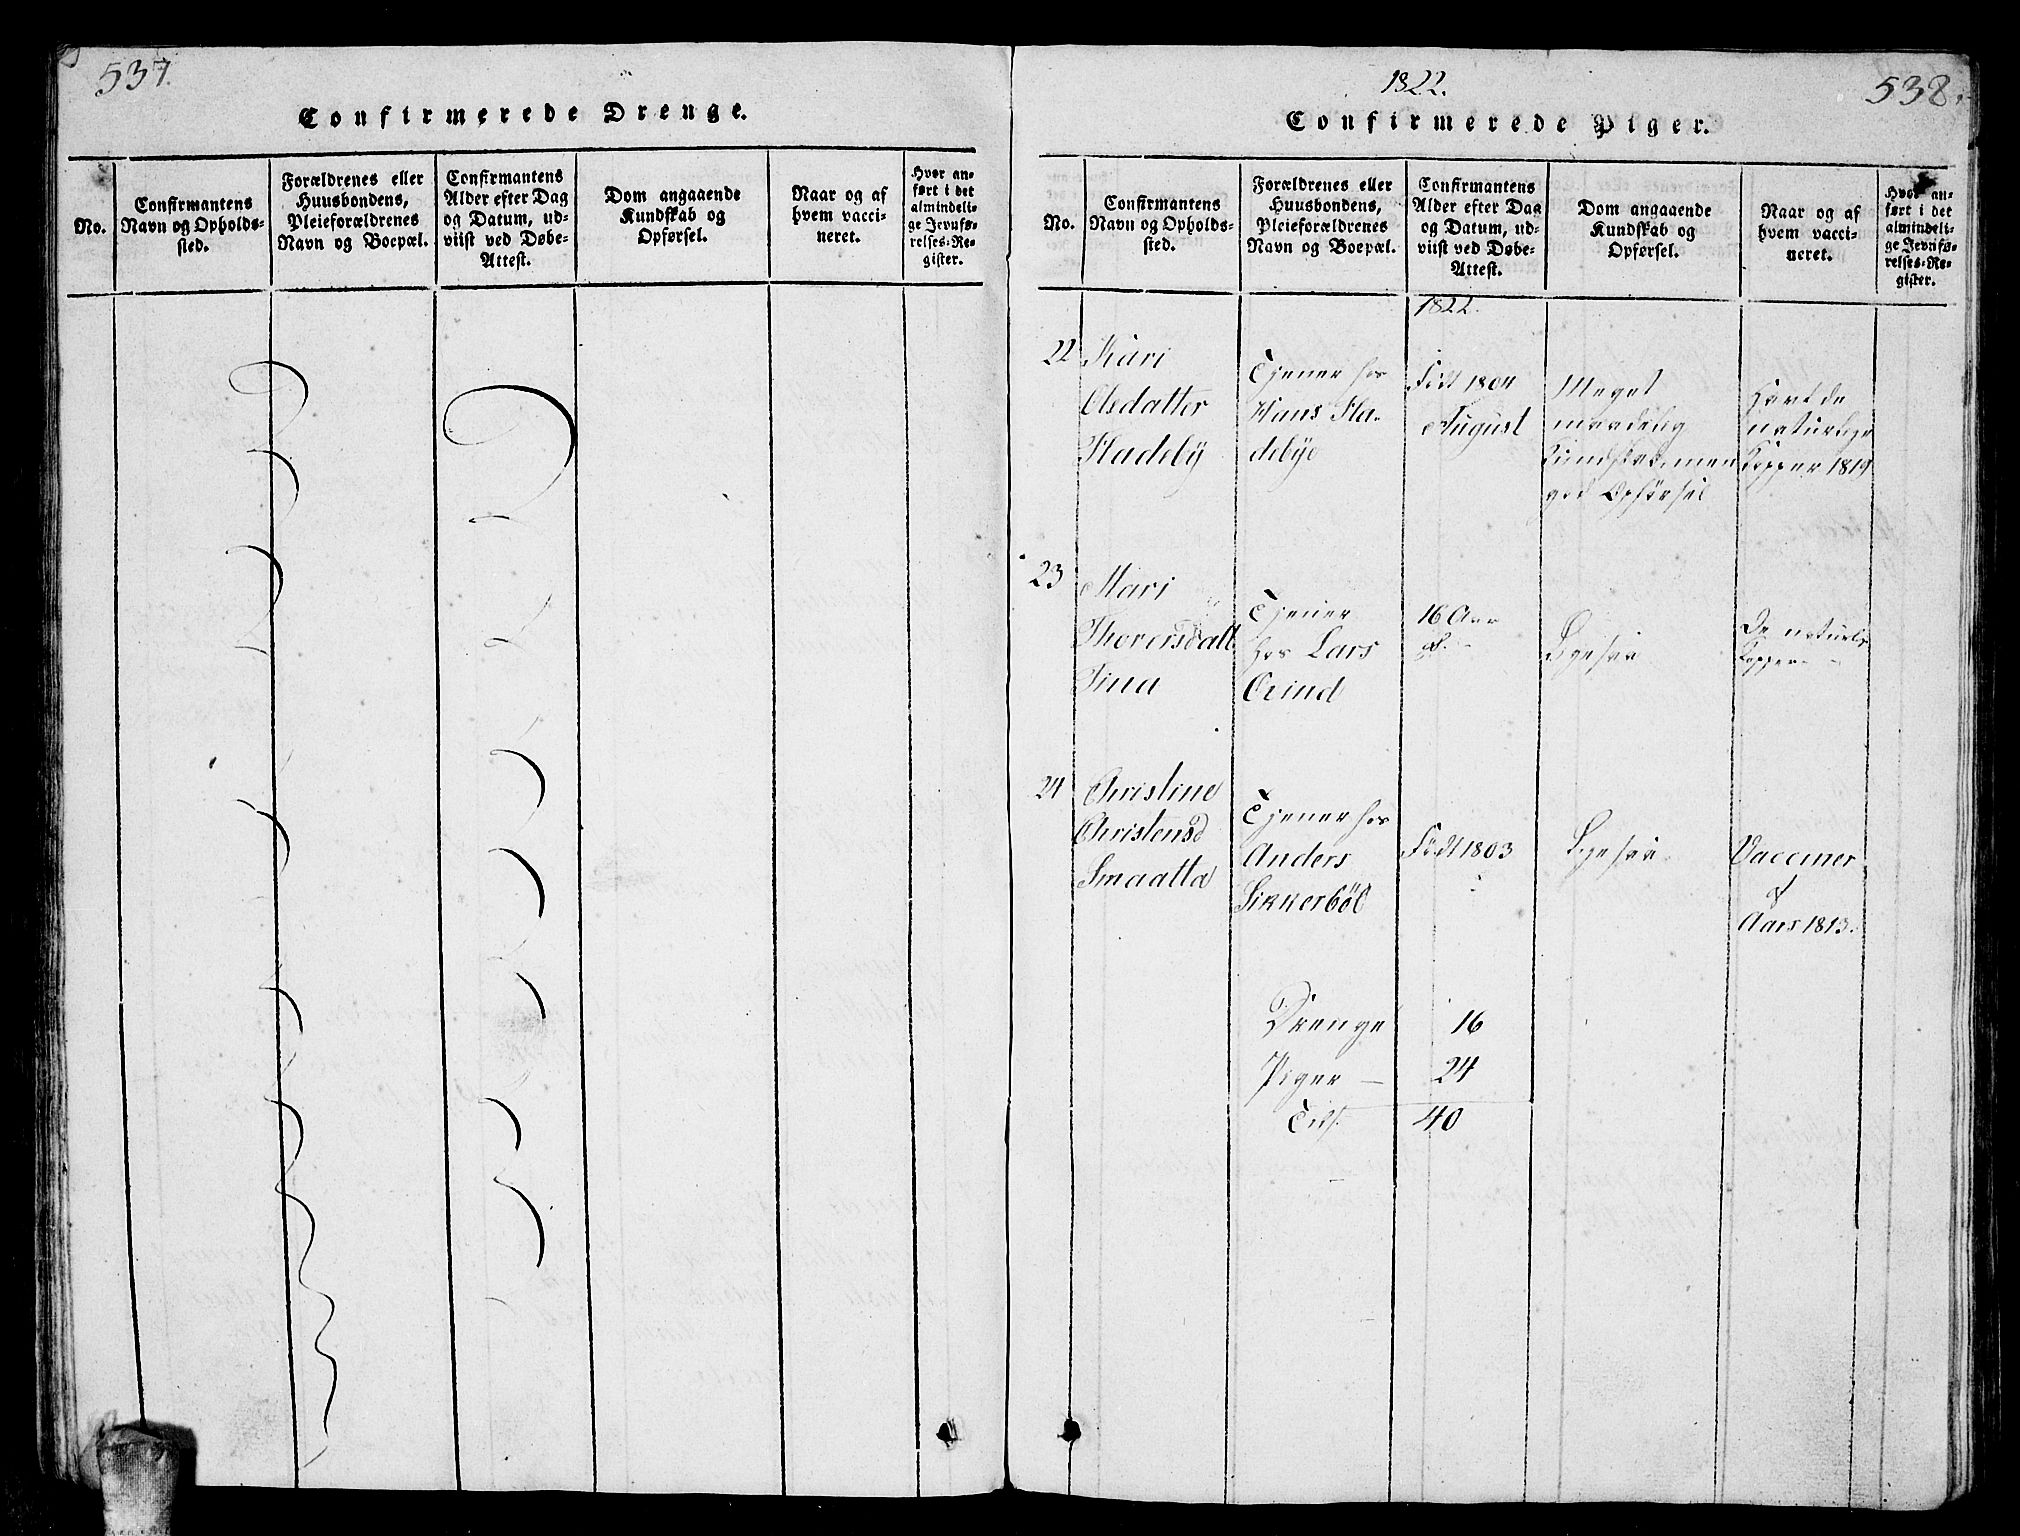 537.
Confirmerede Drenge.
No.
Confirmantens
Navn og Opholds-
sted.
Forældrenes eller
Huusbondens,
Pleieforældrenes
Navn og Boepæl.
Confirmantens
Alder efter Dag
og Datum, ud-
viist ved Døbe-
Attest.
Dom angaaende
Kundskab og
Opførsel.
Naar og af
hvem vacci-
neret.
Hvor an-
ført i det
almindeli-
ge Jevnfø-
relses-Re-
gister.
1822.
538.
Confirmerede Piger.
No.
Confirmantens
Navn og Opholds-
sted.
Forældrenes eller
Huusbondens,
Pleieforældrenes
Navn og Boepæl.
Confirmantens
Alder efter Dag
og Datum, ud-
viist ved Døbe-
Attest.
Dom angaaende
Kundskab og
Opførsel.
Naar og af
hvem vacci-
neret.
Hvor an-
ført i det
almindeli-
ge Jevnfø-
relses-Re-
gister.
1822.
22
Kari
Olsdatter
Fladeby
Tjener hos
Hans Fla-
debye
Født 1804
August
Meget
maadelig
Kundskab, men
god Opførsel
Havt de
naturlige
Kopper 1819
23
Mari
Thoversdatt
Tjener
hos Lars
Qvind
16 Aar
gl.
Ligesaa
De naturlig
Kopper
24
Christine
Christensd
Smaatta
Tjener hos
Anders
Sikkerböl
Født 1803
Ligesaa
Vacciner
af
Aars 1813.
Drenge 16
Piger - 24
Tils. 40